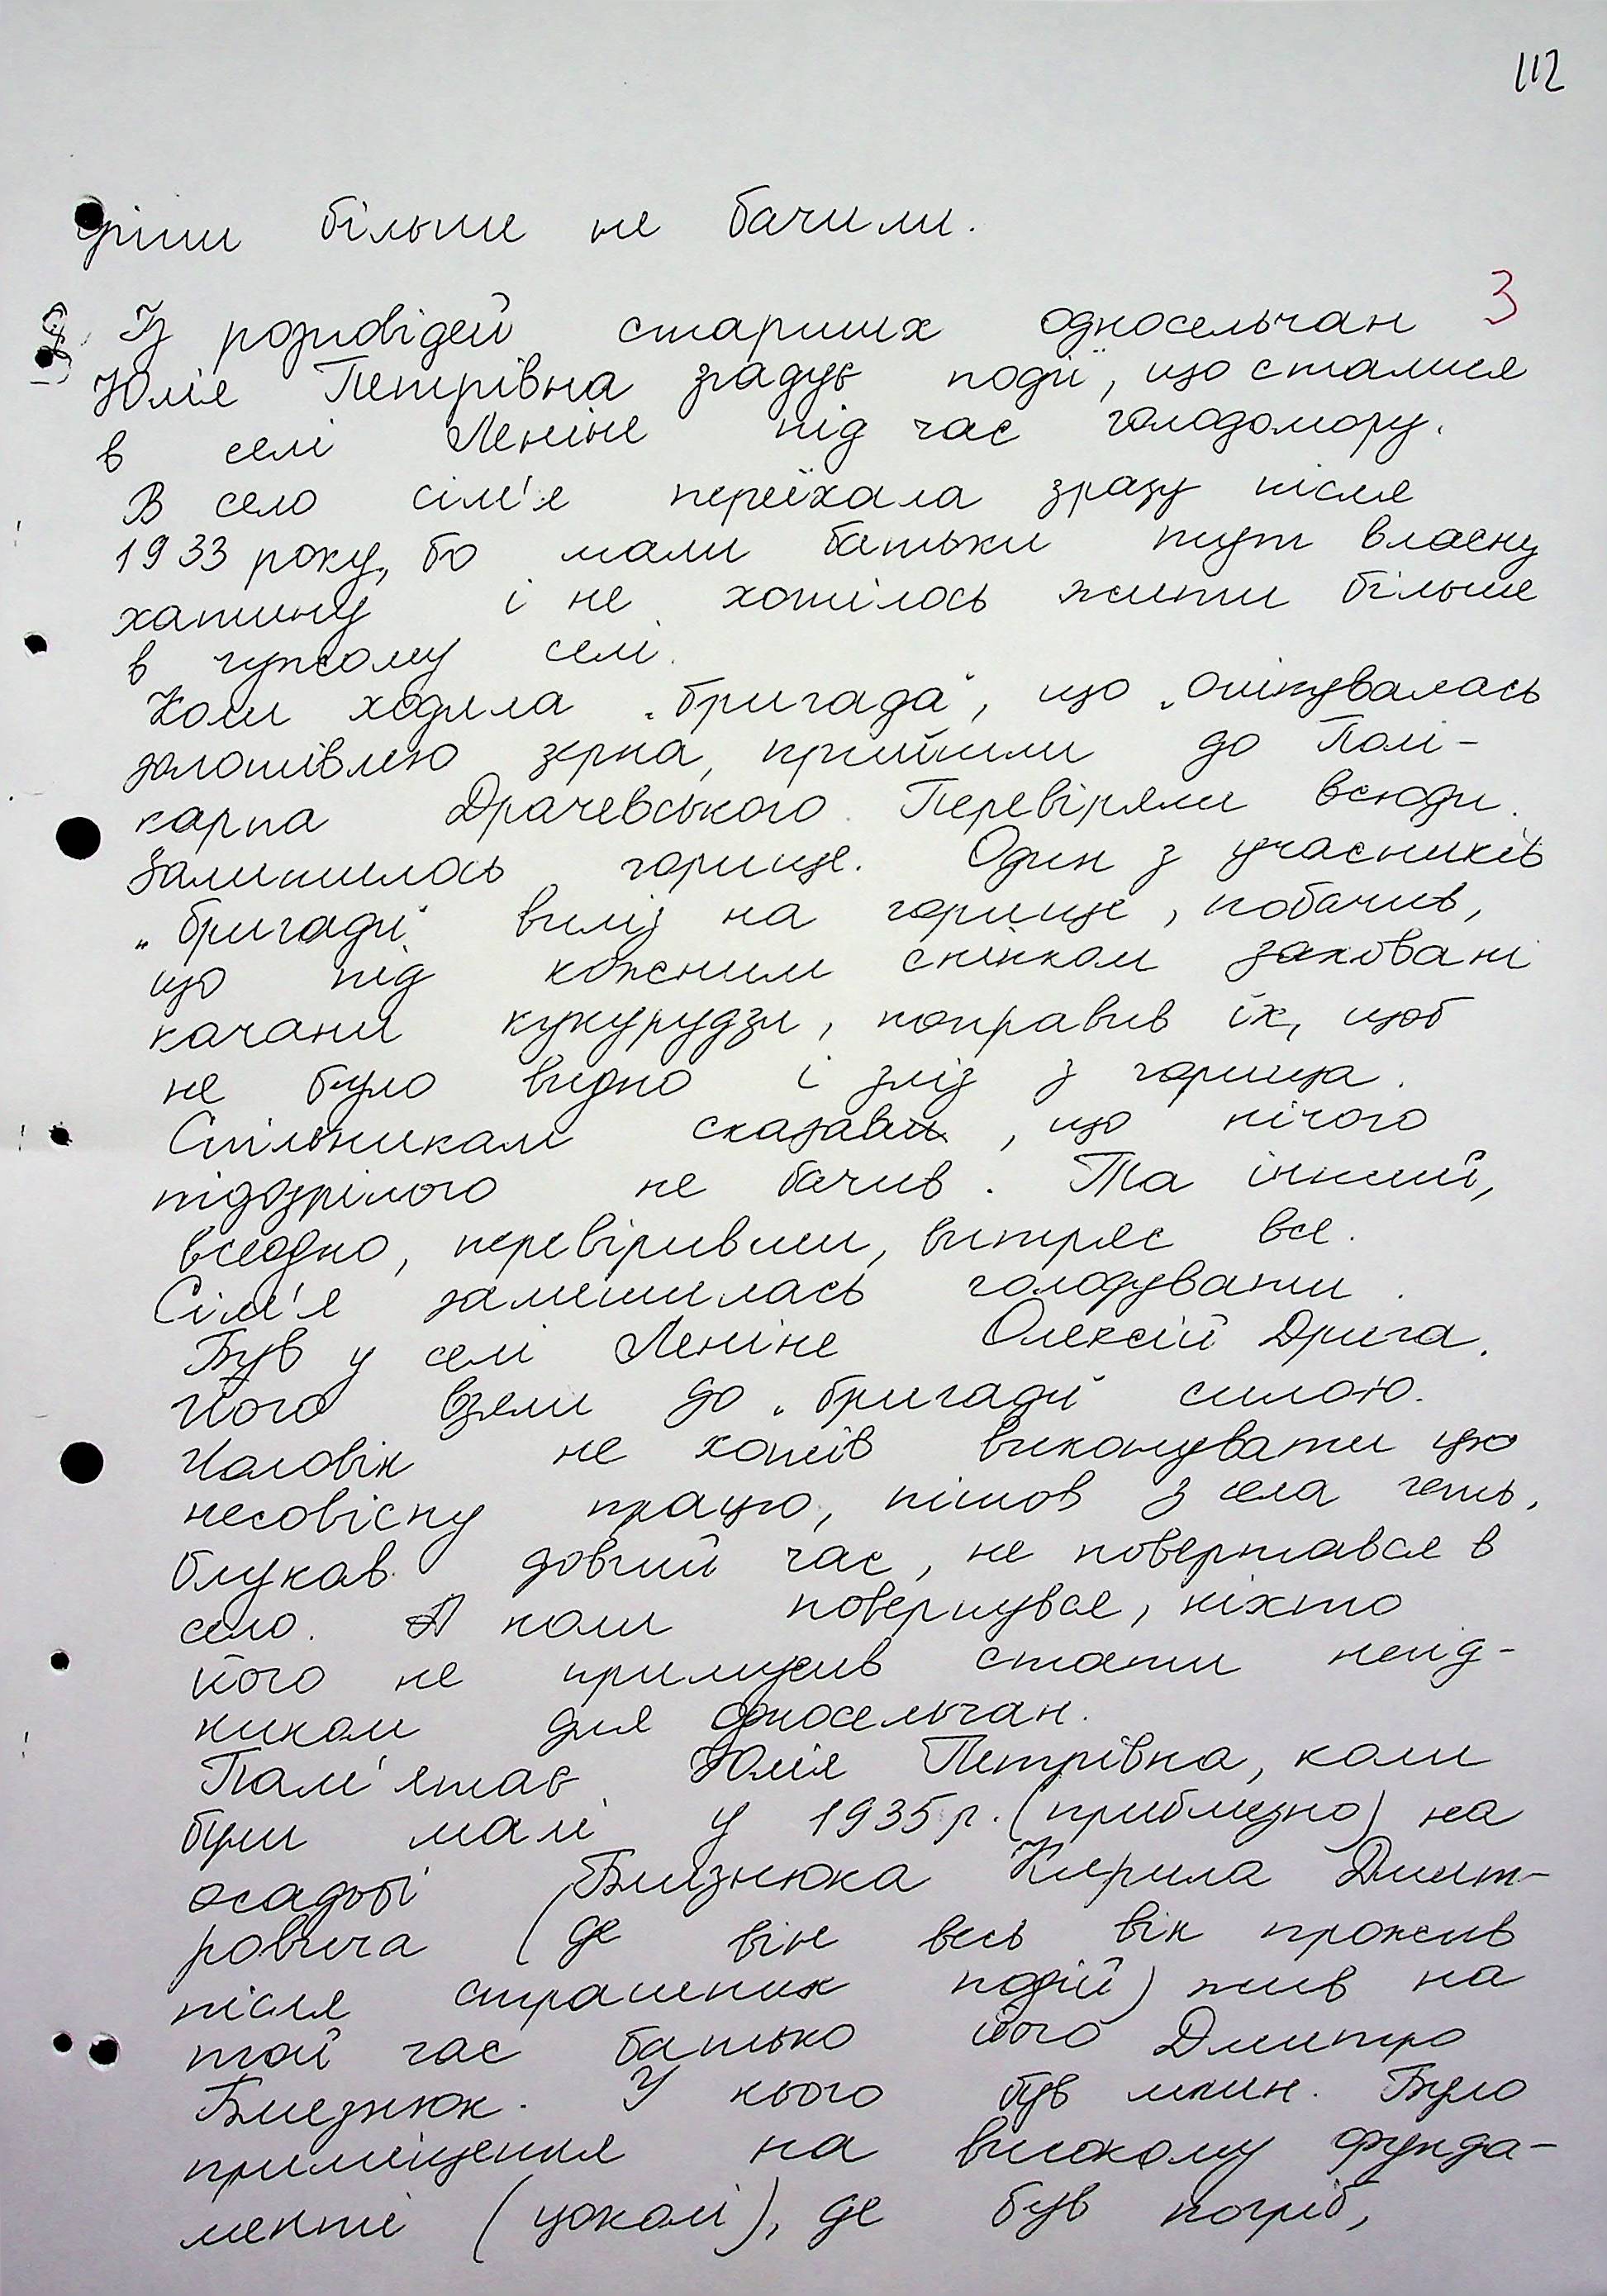 112
гріши більше не бачили.
3
Із розповідей старших односельчан
Юлія Петрівна згадує події, що сталися
в селі Леніне під час голодомору.
В село сім'я переїхала зразу після
1933 року, бо мали батьки тут власну
хатину і не хотілось жити більше
в чужому селі.
Коли ходила „бригада", що „опікувалась
заготівлею зерна, прийшли до Полі-
карпа Драчевського. Перевіряли всюди.
Залишилось горище. Один з учасників
„бригади" виліз на горище, побачив,
що під кожним снінком заховані
качани кукурудзи, поправив їх, щоб
не було видно і зліз з горища.
Спільникам сказав, що нічого
підозрілого не бачив. Та інший,
всеодно, перевіривши, витряс все.
Сім'я залишилась голодувати.
Був у селі Леніне Олексій Дрига.
Його взяли до „бригади" силою.
Чоловік не хотів виконувати цю
несовісну працю, пішов з села геть,
блукав довгий час, не повертався в
село. А коли повернувся, ніхто
його не примусив стати негід-
ником для односельчан.
Пам'ятає Юлія Петрівна, коли
були малі у 1935 р. (приблизно) на
осадьбі Близнюка Кирила Дмит-
ровича (де він весь вік прожив
після страшних подій) жив на
той час батько його Дмитро
Близнюк. У нього був млин. Було
приміщення на високому фунда-
менті (цоколі), де був погріб,